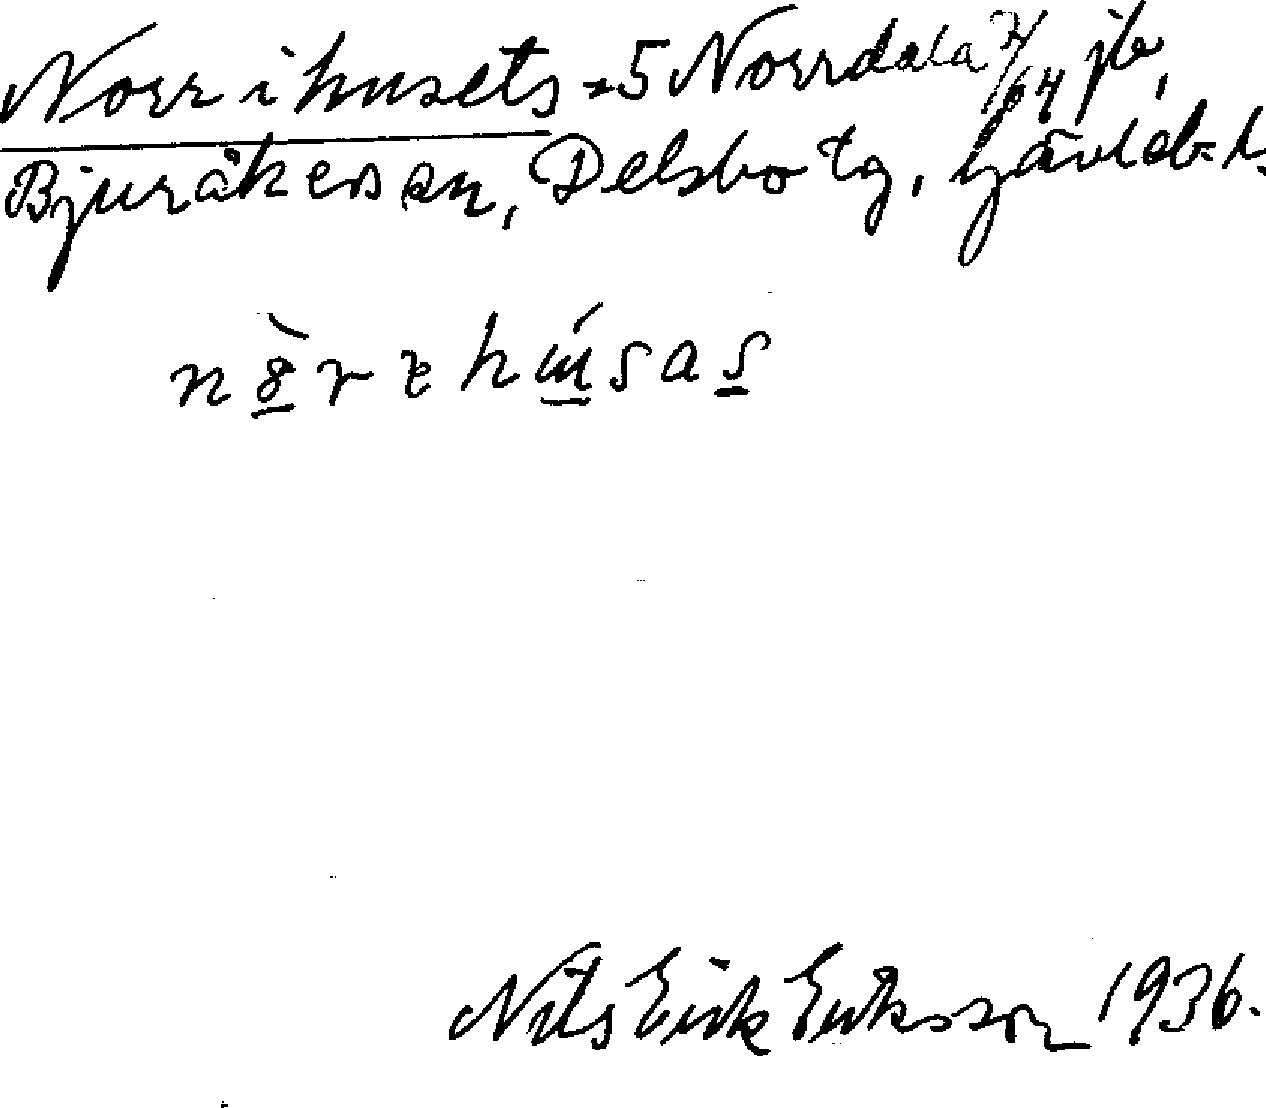 Norrihusets =5 Norrdala 2/64 jb,
Bjuråkers sn, Delsbo tg, Gävleb. l.
Nils Erik Eriksson 1936.